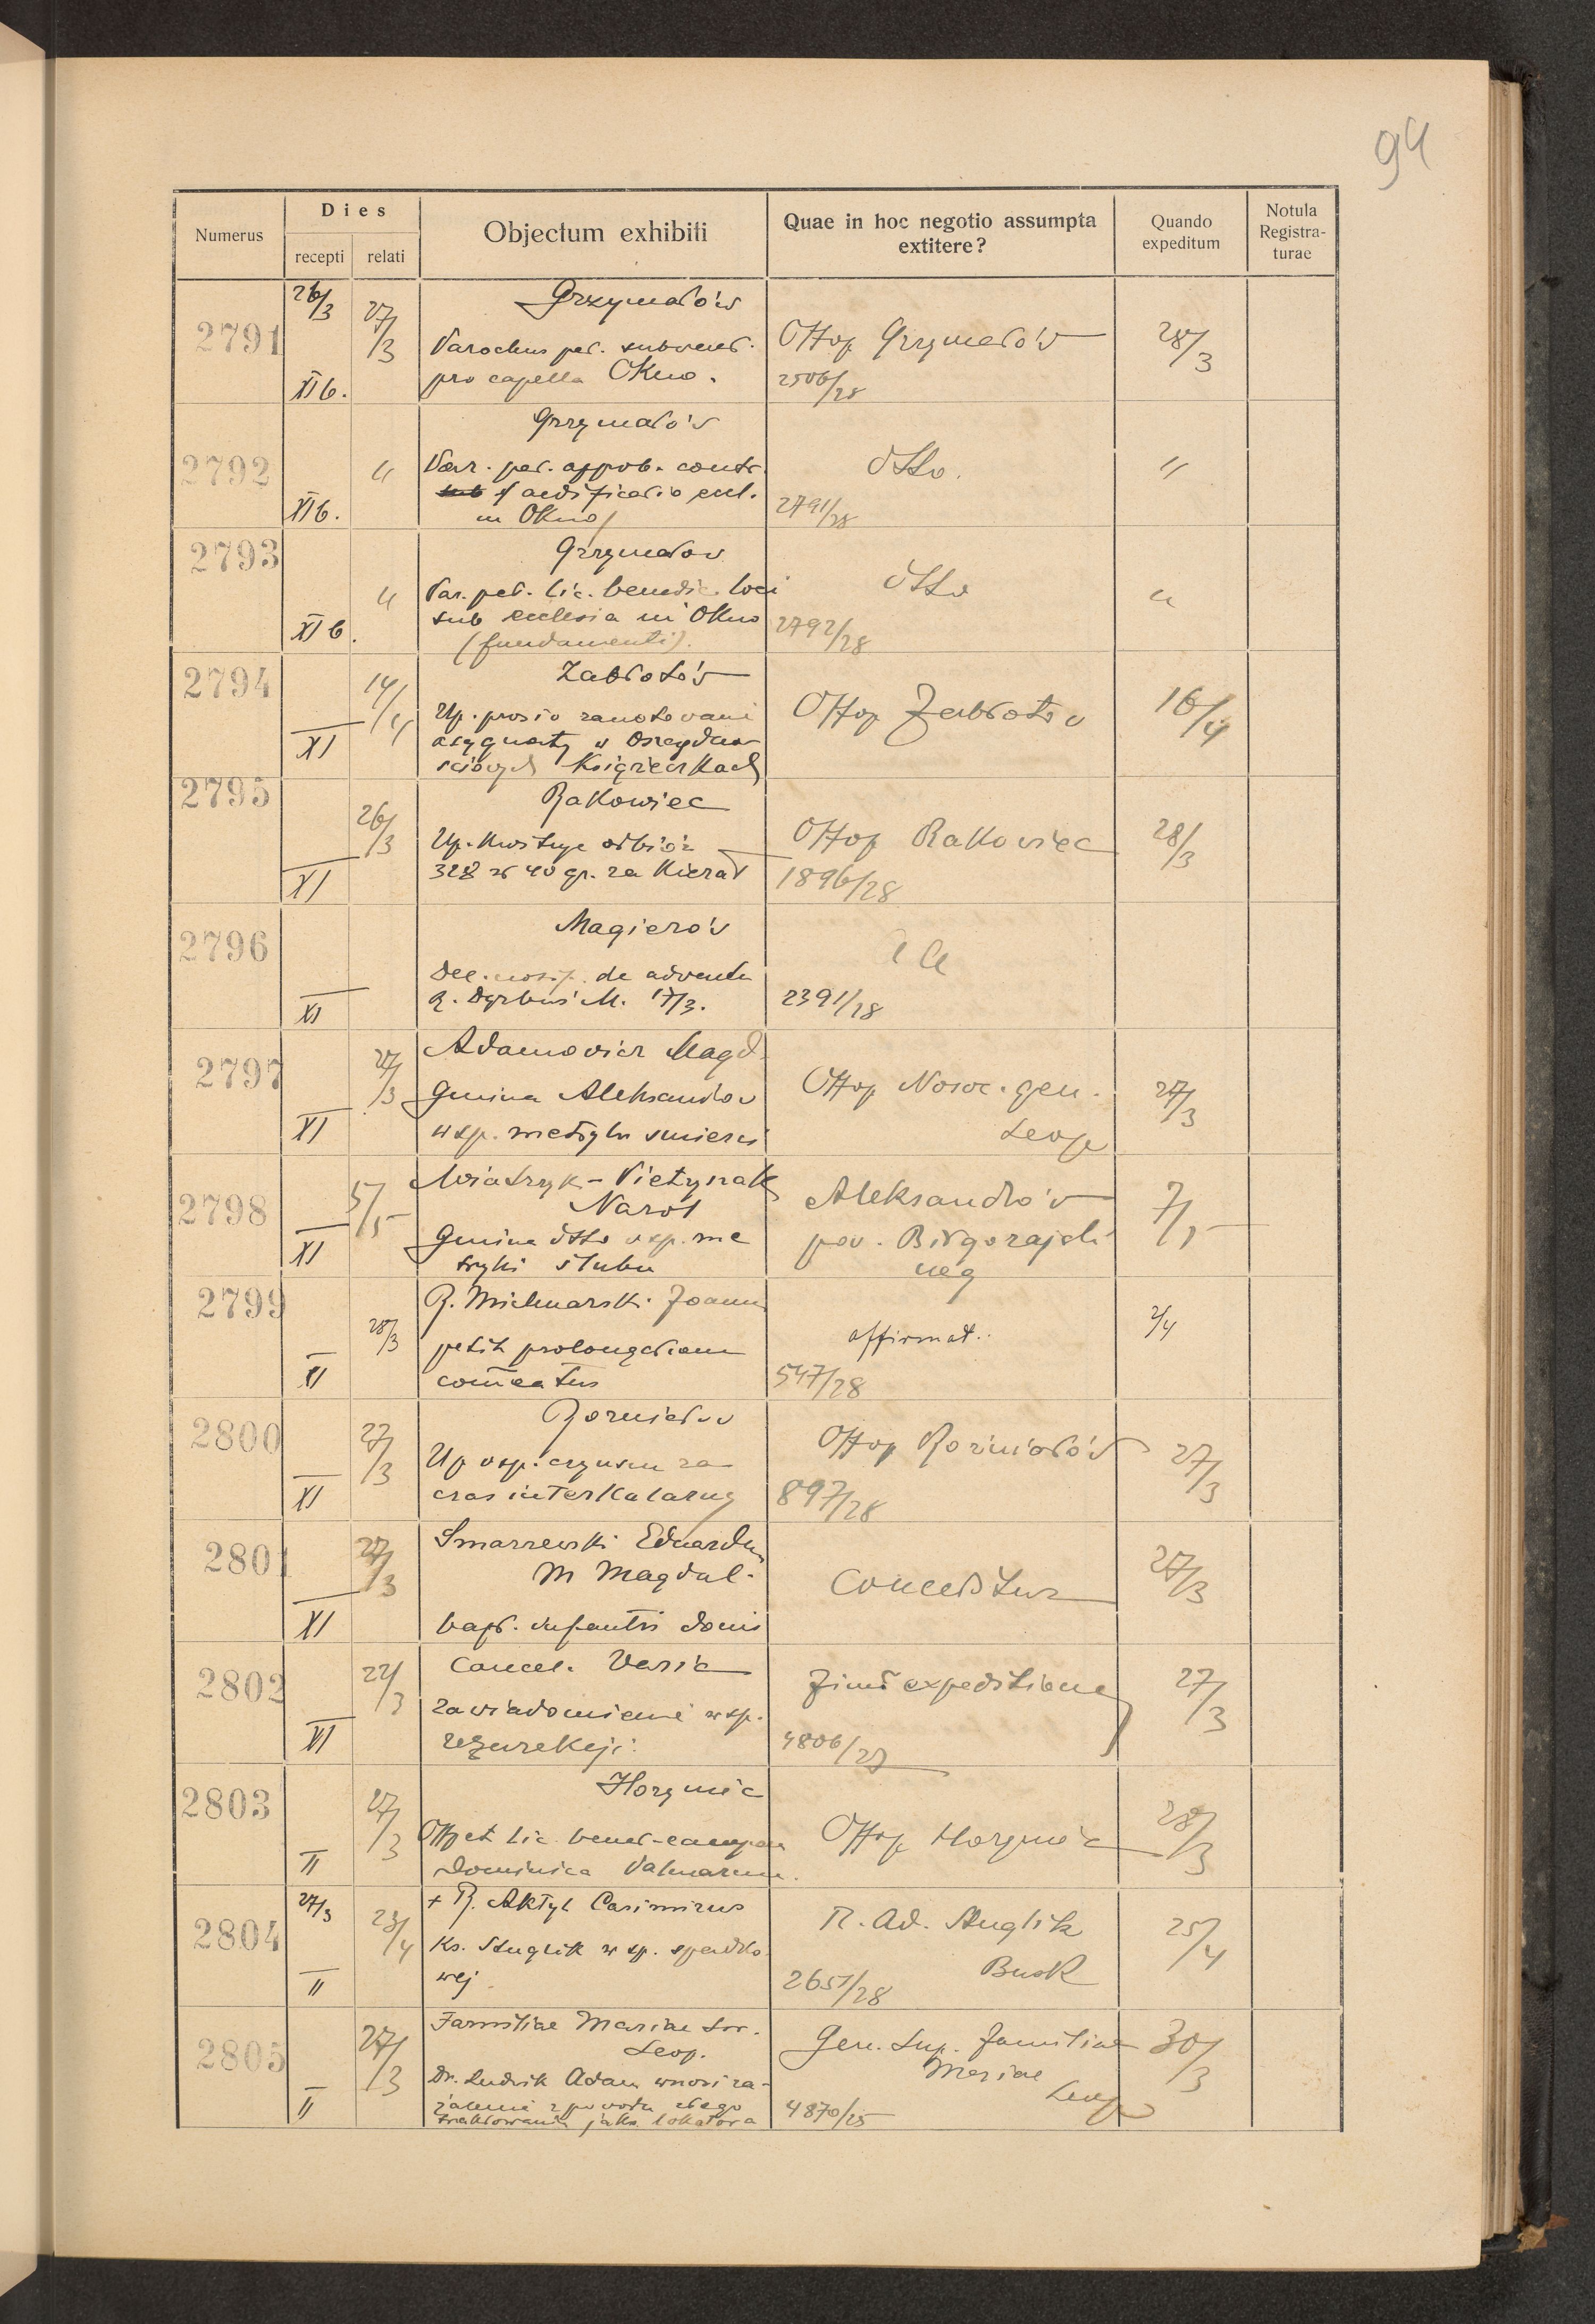 94
Numerus
Dies
recepti relati
Objectum exhibiti
Quae in hoc negotio assumpta
extitere?
Quando
expeditum
Notula
Registra-
turae
2791
26/3
27/3
XIb.
Grzymałów
Parochus pet. subvent.
pro capella Okno.
Offop Grzymałów
2506/28
28/3
2792
"
XIb.
Grzymałów
Par. pet. approb. contr.
aedificatio eccl.
in Okno
dtto.
2791/28
"
2793
"
XIb.
Grzymałow
Par. pet. lic. benedic. loci
sub ecclesia in Okno
(fundamenti).
dtto
2792/28
"
2794
14/4
XI
Zabłotów
Up. prosi o zanotowani
asygnaty w oszczędno-
ściowych Książeczkach
Offop Zabłotów
16/4
2795
26/3
XI
Rakowiec
Up. Kwituje odbiór
328 zł 40 gr. za Kierat
Offop Rakowiec
1896/28
28/3
2796
XI
Magierów
Dec. notif. de adventu
R. M. 17/3.
2391/28
2797
27/3
XI
Adamowicz Magd.
Gmina Aleksandrow
wsp. metryki smierci
Offop Noso. gen.
Leop
27/3
2798
5/5
XI
Wiatrzyk - Pietynak
Narol
Gmina dtto wsp. me
tryki ślubu
Aleksandrów
pow. Biłgorajski
7/5
2799
28/3
II
R. Michnarski Joann
petit prolongationem
comeatus
affirmat.
547/28
2/4
2800
27/3
XI
Rozniatow
Up wsp. czynszu za
czas interkalarny
Offop Rozniatów
897/28
27/3
2801
27/3
XI
Smarzewski Eduardus
M Magdal.
bapt. infantis domi
Conceditur
27/3
2802
27/3
XI
Cancel. Varia
zawiadomienie wsp.
rezurekcji.
expeditione
4806/27
27/3
2803
27/3
II
Horyniec
Offpet lic. bened-campan
Dominica Palmarum.
Offop Horyniec
28/3
2804
27/3
23/4
II
+ R. Aktyl Casimirus
Ks. Stuglik w sp. spadko
wej
R. Ad. Stuglik
Busk
2651/28
25/4
2805
27/3
II
Familiae Mariae Sor.
Leop.
Dr. Ludwik Adam wnosi za-
żalenie z powodu złego
traktowania jako lokatora
Gen. Sup. Familiae
Mariae
Leop
4870/25
30/3